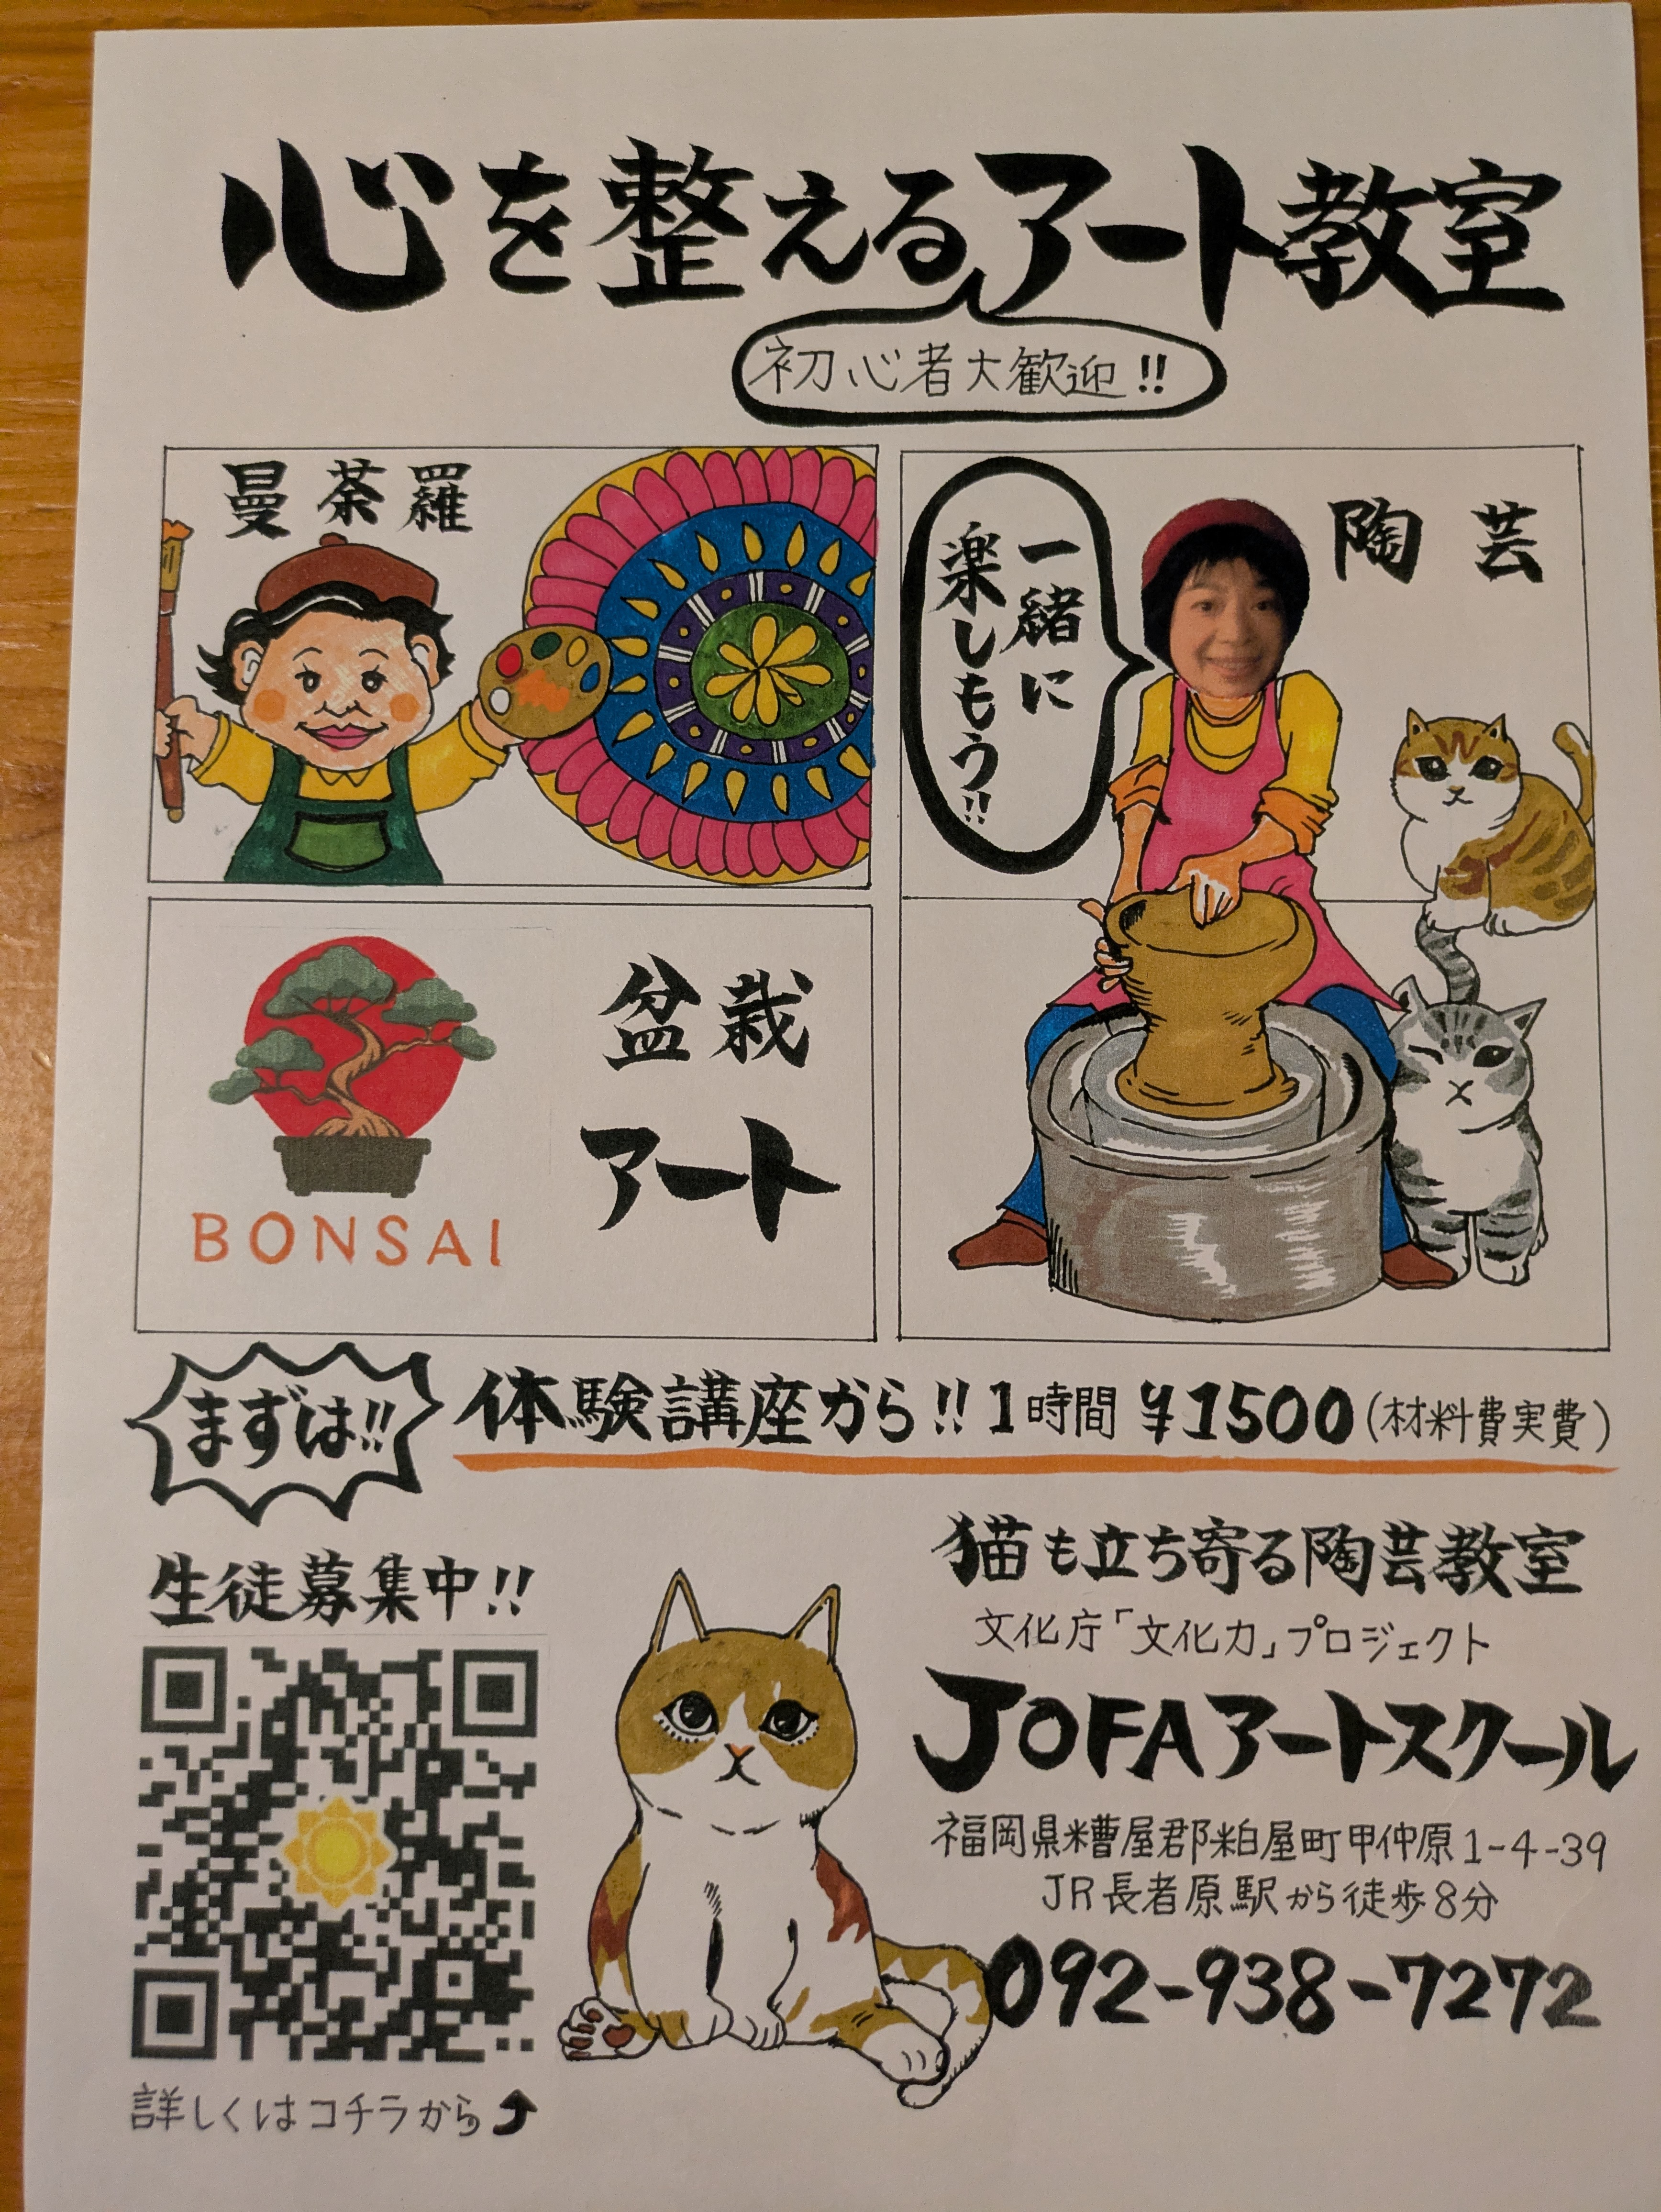 心を整えるアート教室
初心者大歓迎!!
曼荼羅
陶芸
一緒に
楽しもう!!
盆栽
アート
BONSAI
まずは!!
体験講座から!! 1時間 ¥1500(材料費実費)
生徒募集中!!
猫も立ち寄る陶芸教室
文化庁「文化力」プロジェクト
JOFAアートスクール
福岡県糟屋郡粕屋町甲仲原1-4-39
JR長者原駅から徒歩8分
092-938-7272
詳しくはコチラから